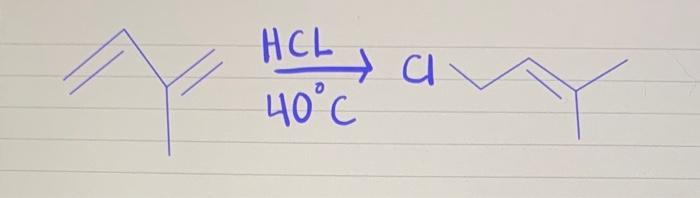 HCL
40°C
Cl